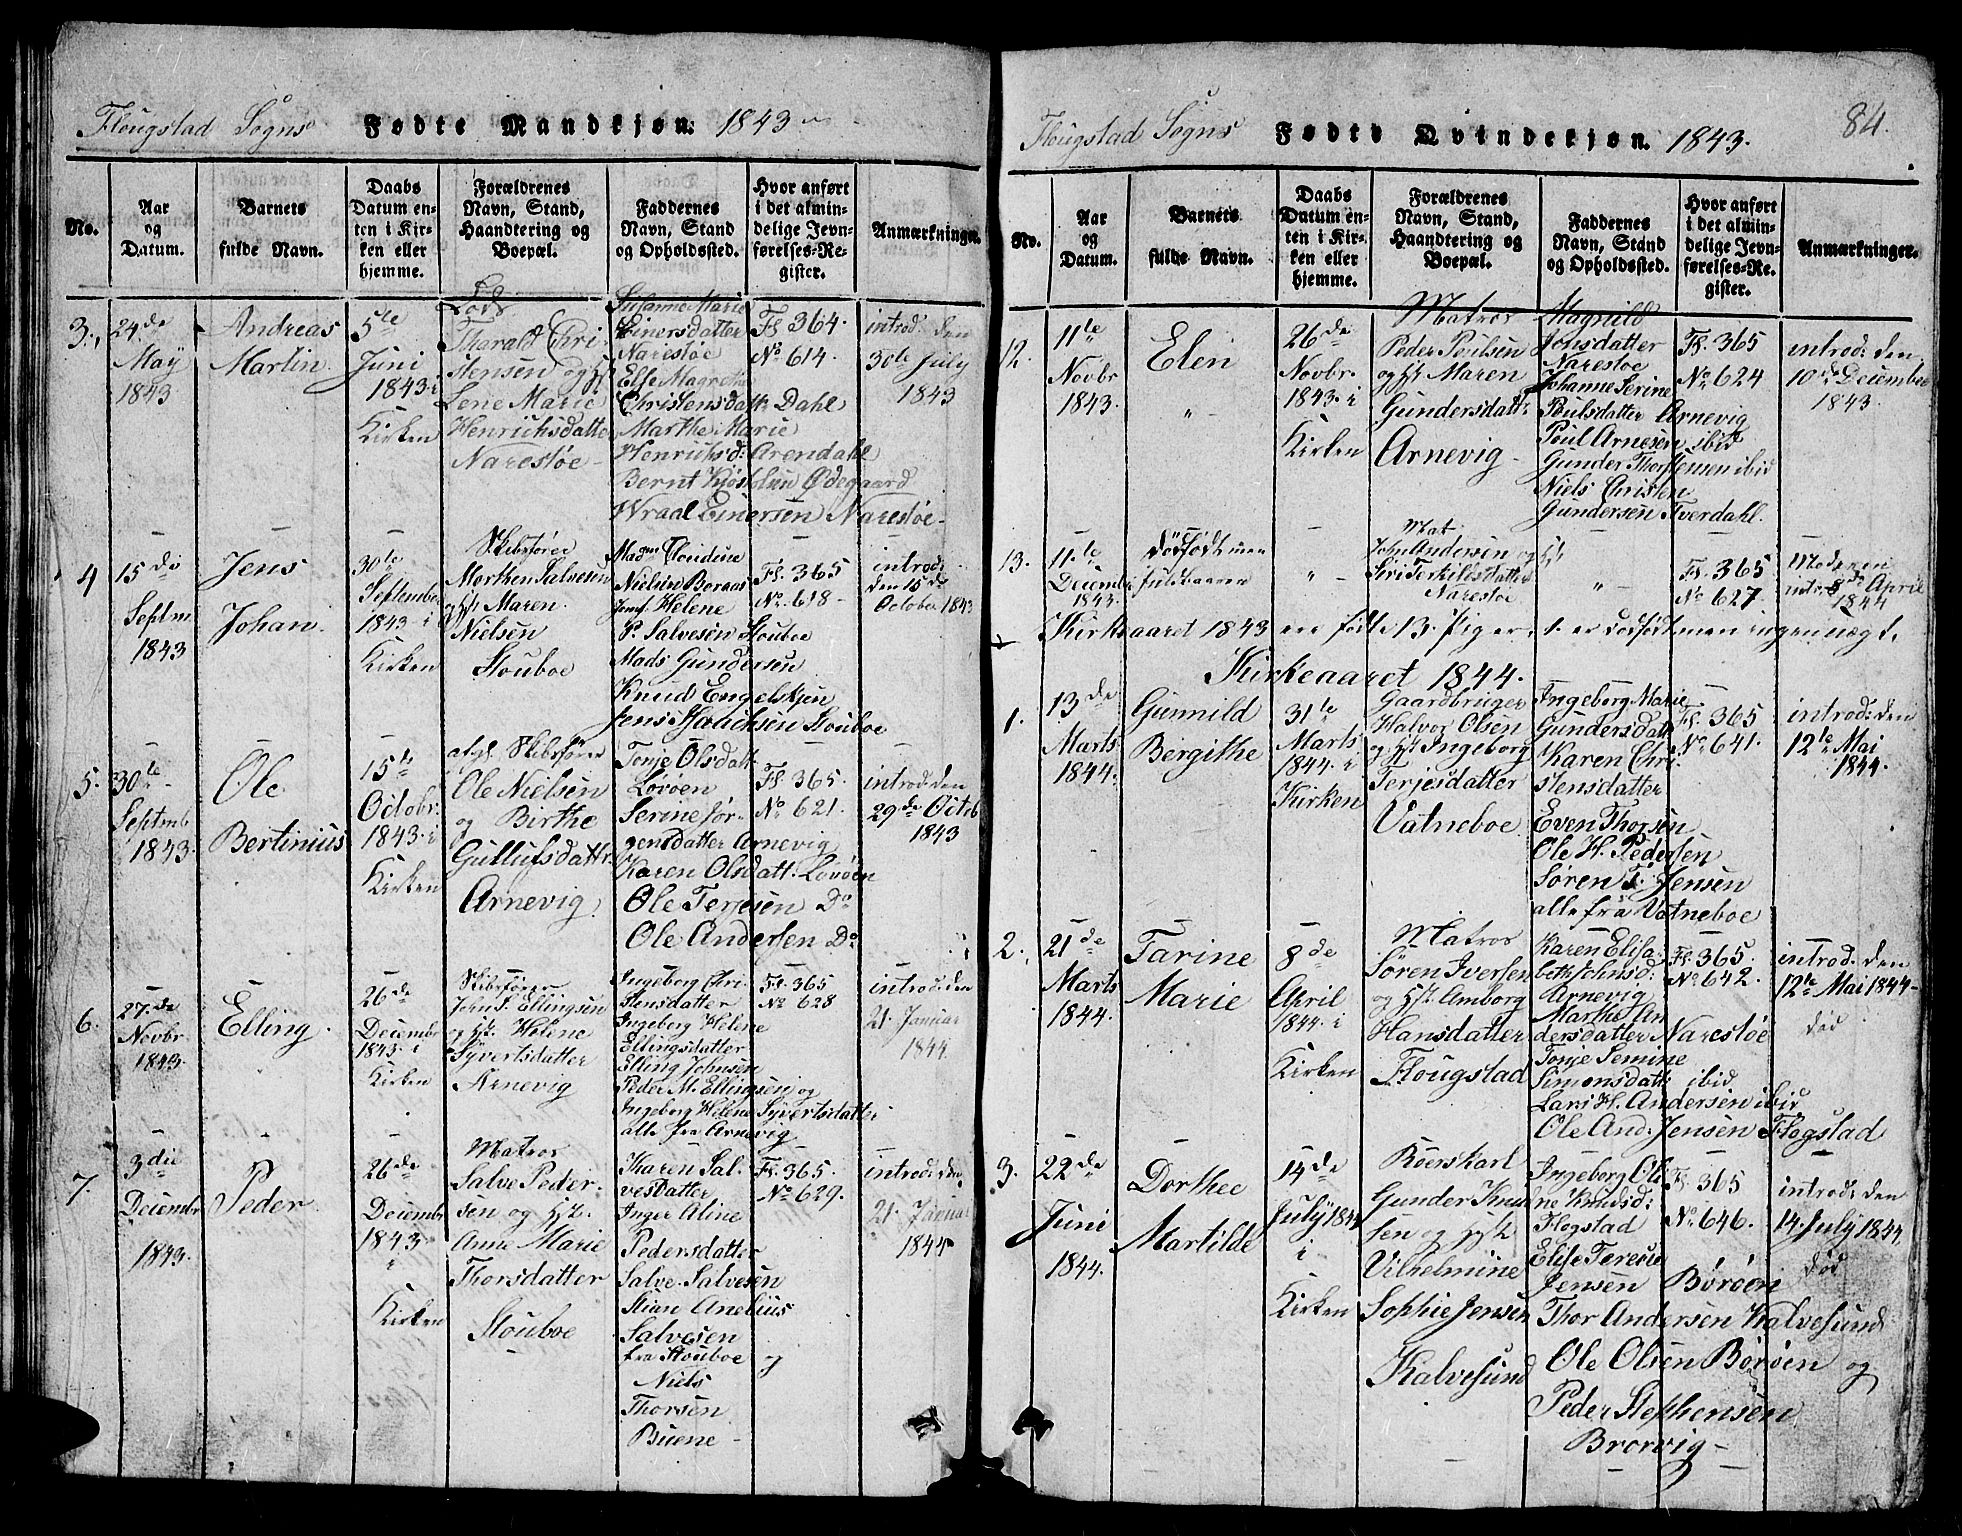 Flougstad Sogns Fødte Mandkjøn. 1843
No.
Aar
og
Datum.
Barnets
fulde Navn.
Daabs
Datum en-
ten i Kir-
ken eller
hjemme.
Forældrenes
Navn, Stand,
Haandtering og
Boepæl.
Faddernes
Navn, Stand
og Opholdssted.
Hvor anført
i det almin-
delige Jevn-
førelses-Re-
gister.
Anmærkninger.
3.
24de
May
1843
Andreas
Martin.
5te
Juni
1843 i
Kirken
Lods
Tharald Chri-
stensen og Hst
Lene Marie
Henrichsdatter
Narestøe
Susanne Marie
Einersdatter
Narestøe
Else Magrethe
Christensdatt: Dahl
Marthe Marie
Henrichsd: Arendahl
Bernt Kjøstolsen Ødegaard
Wraal Einersen Narestøe
Fl. 364.
No 614.
introd: den
30te July
1843
4
15de
Septm
1843
Jens
Johan.
30te
September
1843 i
Kirken
Skibsfører
Morten Salvesen
og Hst Maren
Nielsen
Stouboe
Madme Claudine
Nielsen Boraas
Jomf. Helene
P. Salvesen Stouboe
Mads Gundersen
Knud Engelskjøn
Jens Stouboe
Fl. 365
No 618
introd:
den 15de
October 1843
5.
30te
Septmb
1843.
Ole
Bertinius
15de
Octobr.
1843 i
Kirken
afgl. Skibsfører
Ole Nielsen
og Birthe
Gullufsdattr.
Arnevig.
Tonje Olsdatt.
Løvøen
Serine Jør-
gensdatter Arnevig
Karen Olsdatt: Løvøen
Ole Terjesen Do
Ole Andersen Do
Fl. 365.
No 621.
introd: den
29de Octob
1843
6.
27.de
Novbr
1843.
Elling.
26de
Decembr
1843. i
Kirken
Skibsfører
John S. Ellingsen
og Hst. Helene
Syvertsdatter
Arnevig
Ingeborg Chri-
stensdatter
Ingeborg Helene
Ellingsdatter
Elling Johnsen
Peder M. Ellingsen og
Ingeborg Helene Syvertsdatter
alle fra Arnevig
Fl. 365
No 628
introd: den
21. Januar
1844.
7.
3die
Decembr
1843.
Peder.
26de
Decembr
1843
i
Kirken
Matros
Salve Peder-
sen og Hst.
Anne Marie
Thorsdatter
Stouboe
Karen Sal-
vesdatter
Inger Aline
Pedersdatter
Salve Salvesen
Stian Anelius
Salvesen
fra Stouboe og
Niels
Thorsen
Buene
Fl. 365.
No 629.
introd: den
21. Januar
1844
Flougstad Sogns Fødte Qvindekjøn. 1843.
84.
No.
Aar
og
Datum.
Barnets
fulde Navn.
Daabs
Datum en-
ten i Kir-
ken eller
hjemme.
Forældrenes
Navn, Stand,
Haandtering og
Boepæl.
Faddernes
Navn, Stand
og Opholdssted.
Hvor anført
i det almin-
delige Jevn-
førelses-Re-
gister.
Anmærkninger.
12
11te
Novbr
1843.
Elen
26de
Novbr.
1843. i
Kirken
Matros
Peder Poulsen
og Hst Maren
Gundersdattr
Arnevig
Magnild
Johsdatter
Narestoe
Johanne Serine
Poulsdatter Arnevig
Poul Arnesen ibid
Gunder Thorstensen ibid
Niels Christen
Gundersen Tverdahl.
Fl. 365
No 624
introd: den
10de December
1843.
13.
11te
Decemb.
1843.
Dødfødt men
fuldbaaren
Mat
John Andersen og Hst
Siri Terkildsdatter
Narestøe
Fl. 365
No 627.
Moderen
intr: 8de April
1844
Kirkeaaret 1843 ere fødte 13. Piger, 1. er dødfødt men ingen uægt.
Kirkeaaret 1844.
1.
13de
Marts
1844.
Gunnild
Bergithe
31te
Marts
1844. i
Kirken
Gaardbruger
Halvor Olsen
og Hst Ingeborg
Terjesdatter
Vatneboe.
Ingeborg Marie
Gundersdatt
Karen Chri-
stensdatter
Even Thorsen
Ole H. Pedersen
Søren Jensen
alle fra Vatneboe
Fl. 365
No 641.
introd: den
12te Mai
1844.
2.
21de
Marts
1844.
Tarine
Marie
8de
April
1844. i
Kirken
Matros
Søren Iversen
og Hst. Amborg
Hansdatter
Flougstad
Karen Elisa-
beth Johnsd:
Arnevig
Marthe An-
dersdatter Narestøe
Tonje Semine
Simonsdatt: ibid
Lars H. Andersen ibid
Ole And. Jensen Flogstad
Fl. 365.
No 642.
introd. den
12te Mai 1844
død
3.
22de
Juni
1844.
Dorthee
Martilde
14de
July 1844
i
Kirken
Roerskarl
Gunder Knud-
sen og Hst
Vilhelmine
Sophie Jensen
Kalvesund
Ingeborg Oli-
ne Knudsd:
Flogstad
Elise Terese
Jensen Børøen
Thor Andersen Kalvesund
Ole Olsen Børøen og
Peder Stephensen
Brorvig
Fl. 365
No 646.
introd: den
14. July 1844
død